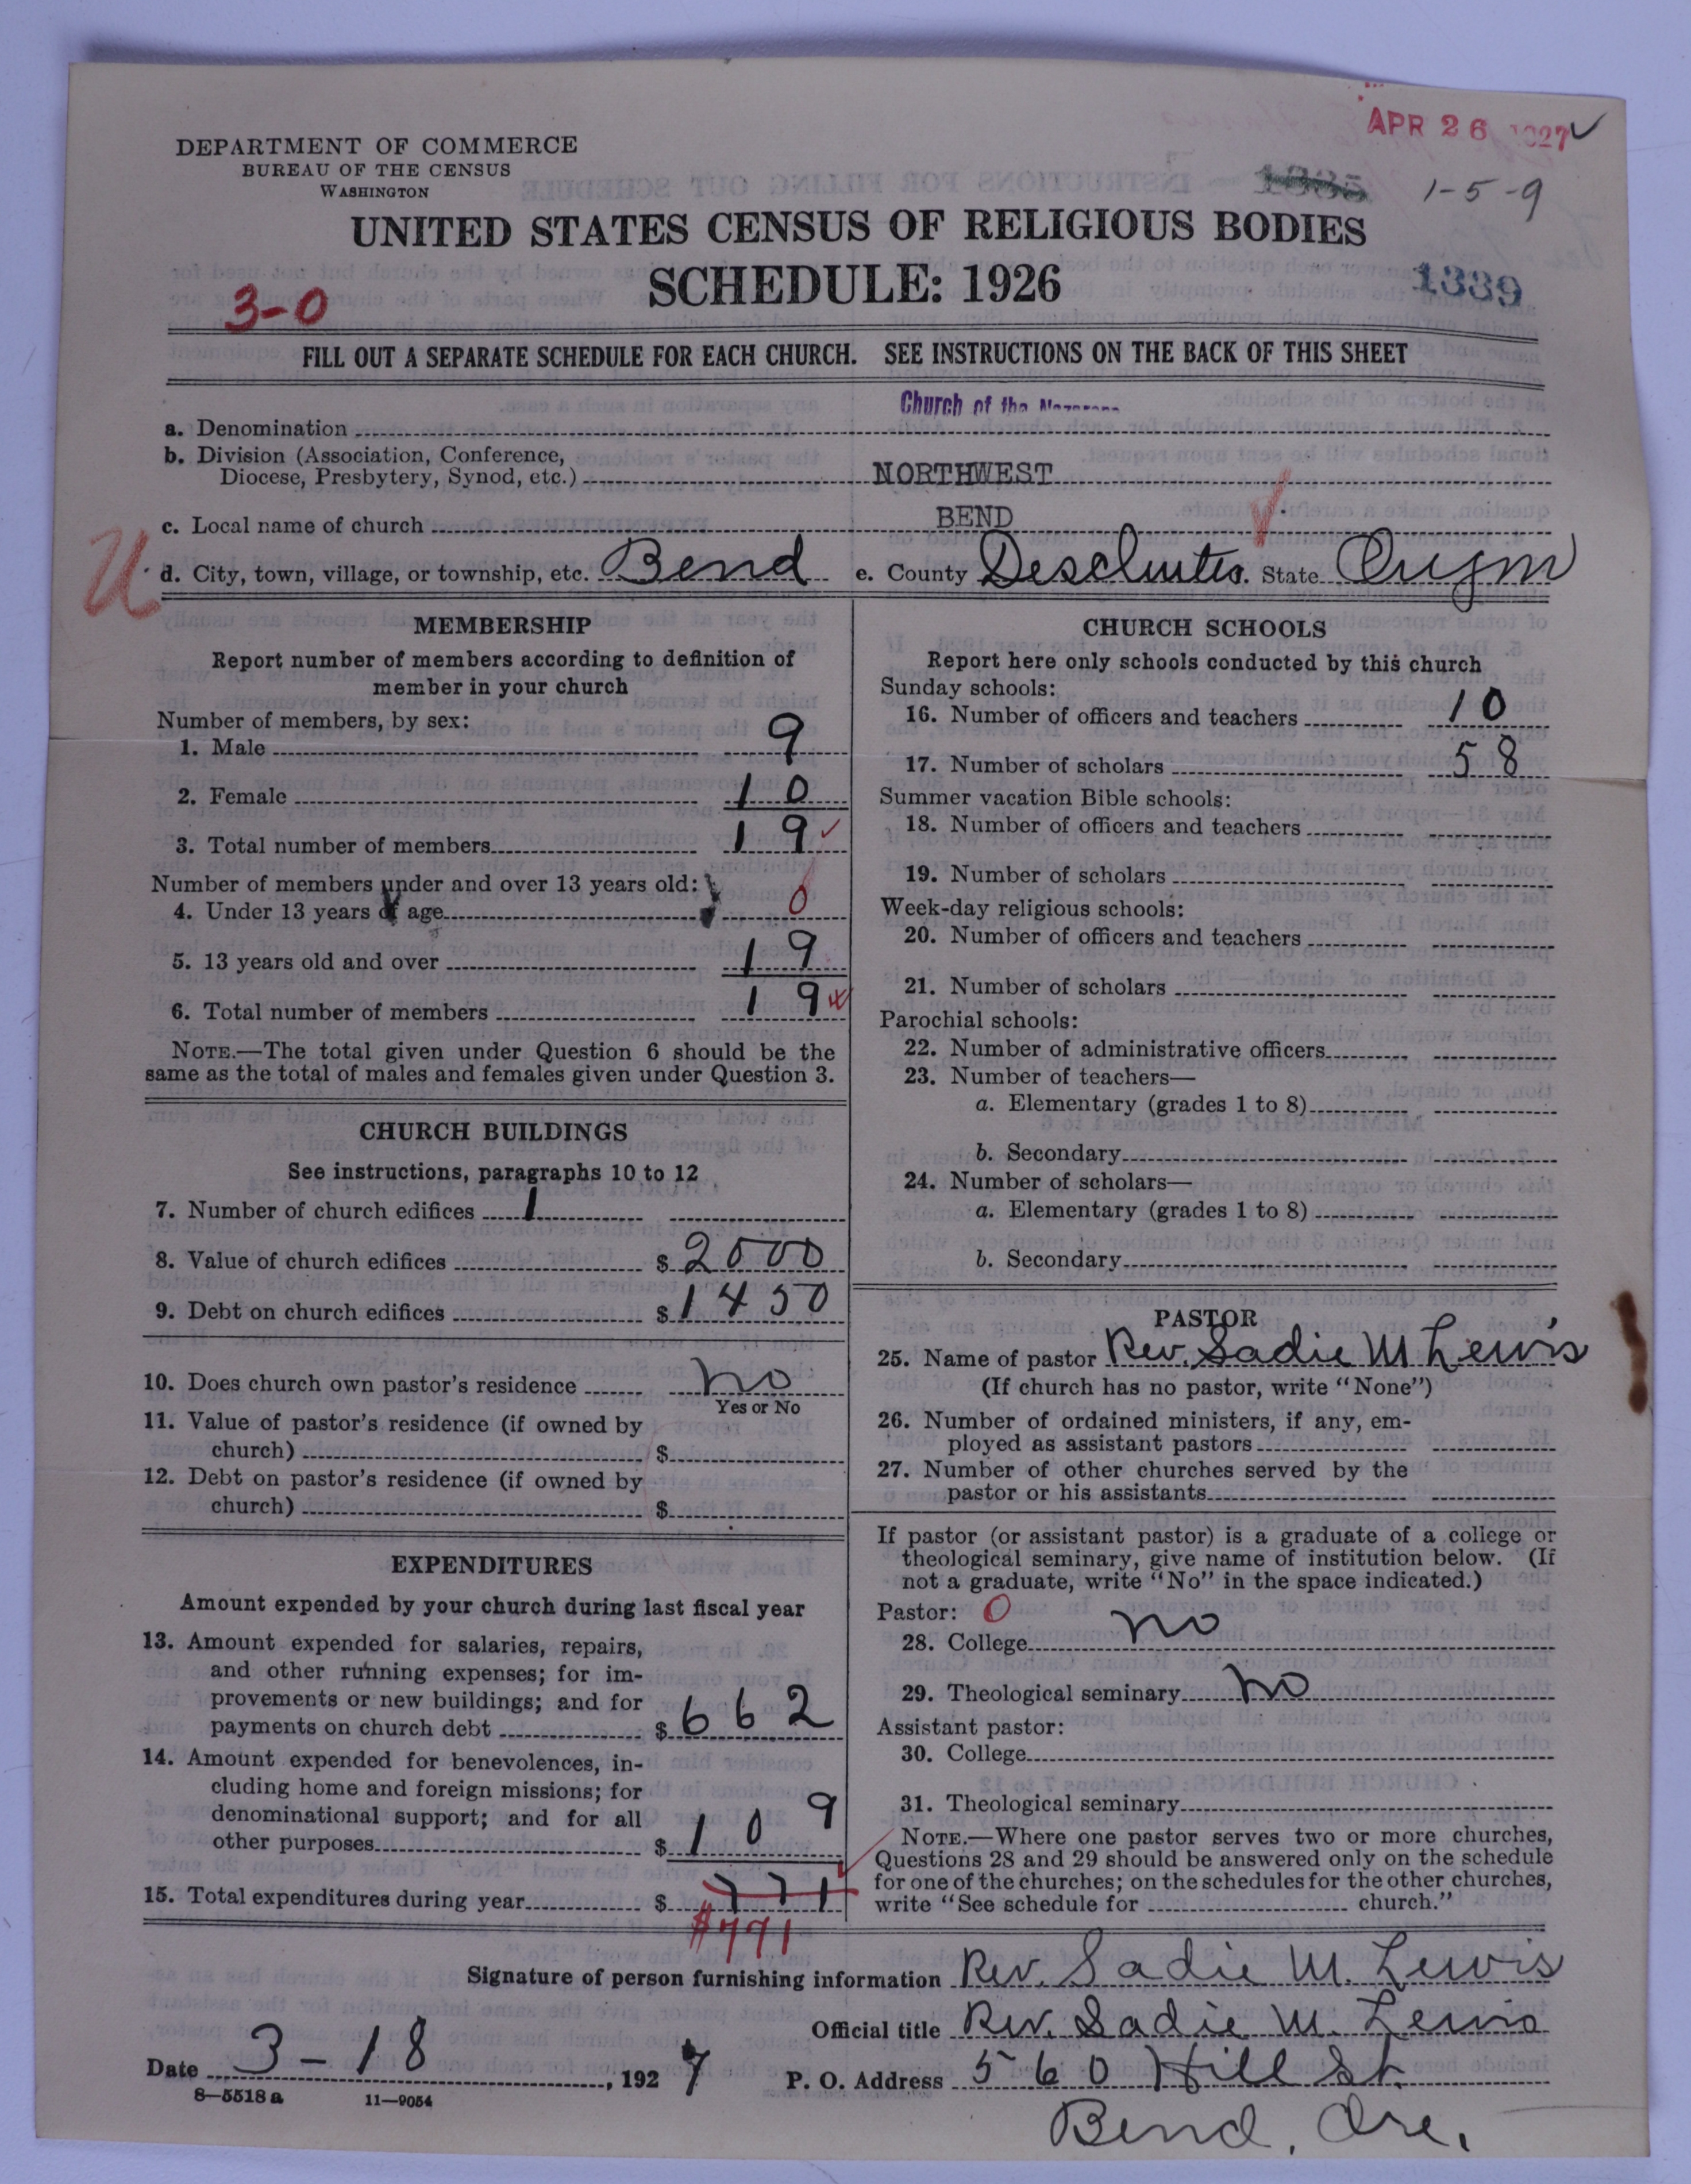 APR 26 1927 ✓
DEPARTMENT OF COMMERCE
BUREAU OF THE CENSUS
WASHINGTON
1-5-9
UNITED STATES CENSUS OF RELIGIOUS BODIES
SCHEDULE: 1926
1339
3-0
FILL OUT A SEPARATE SCHEDULE FOR EACH CHURCH. SEE INSTRUCTIONS ON THE BACK OF THIS SHEET
Church of the Nazarene
a. Denomination
b. Division (Association, Conference,
Diocese, Presbytery, Synod, etc.) NORTHWEST
c. Local name of church BEND
U
d. City, town, village, or township, etc. Bend e. County Deschutes. State Oregon
MEMBERSHIP
Report number of members according to definition of
member in your church
Number of members, by sex:
1. Male 9
2. Female 10
3. Total number of members 19
Number of members under and over 13 years old:
4. Under 13 years of age 0
5. 13 years old and over 19
6. Total number of members 19
NOTE.—The total given under Question 6 should be the
same as the total of males and females given under Question 3.
CHURCH BUILDINGS
See instructions, paragraphs 10 to 12
7. Number of church edifices 1
8. Value of church edifices $ 2500
9. Debt on church edifices $ 1450
10. Does church own pastor's residence no
Yes or No
11. Value of pastor's residence (if owned by
church) $
12. Debt on pastor's residence (if owned by
church) $
EXPENDITURES
Amount expended by your church during last fiscal year
13. Amount expended for salaries, repairs,
and other running expenses; for im-
provements or new buildings; and for
payments on church debt $ 662
14. Amount expended for benevolences, in-
cluding home and foreign missions; for
denominational support; and for all
other purposes $ 109
15. Total expenditures during year $ 771
$771
CHURCH SCHOOLS
Report here only schools conducted by this church
Sunday schools:
16. Number of officers and teachers 10
17. Number of scholars 58
Summer vacation Bible schools:
18. Number of officers and teachers
19. Number of scholars
Week-day religious schools:
20. Number of officers and teachers
21. Number of scholars
Parochial schools:
22. Number of administrative officers
23. Number of teachers—
a. Elementary (grades 1 to 8)
b. Secondary
24. Number of scholars—
a. Elementary (grades 1 to 8)
b. Secondary
PASTOR
25. Name of pastor Rev. Sadie M Lewis
(If church has no pastor, write "None")
26. Number of ordained ministers, if any, em-
ployed as assistant pastors
27. Number of other churches served by the
pastor or his assistants
If pastor (or assistant pastor) is a graduate of a college or
theological seminary, give name of institution below. (If
not a graduate, write "No" in the space indicated.)
Pastor: 0
28. College no
29. Theological seminary no
Assistant pastor:
30. College
31. Theological seminary
NOTE.—Where one pastor serves two or more churches,
Questions 28 and 29 should be answered only on the schedule
for one of the churches; on the schedules for the other churches,
write "See schedule for church."
Signature of person furnishing information Rev. Sadie M. Lewis
Official title Rev. Sadie M. Lewis
Date 3-18, 1927
P. O. Address 560 Hill St.
Bend, Ore.
8—5518 a 11—9054